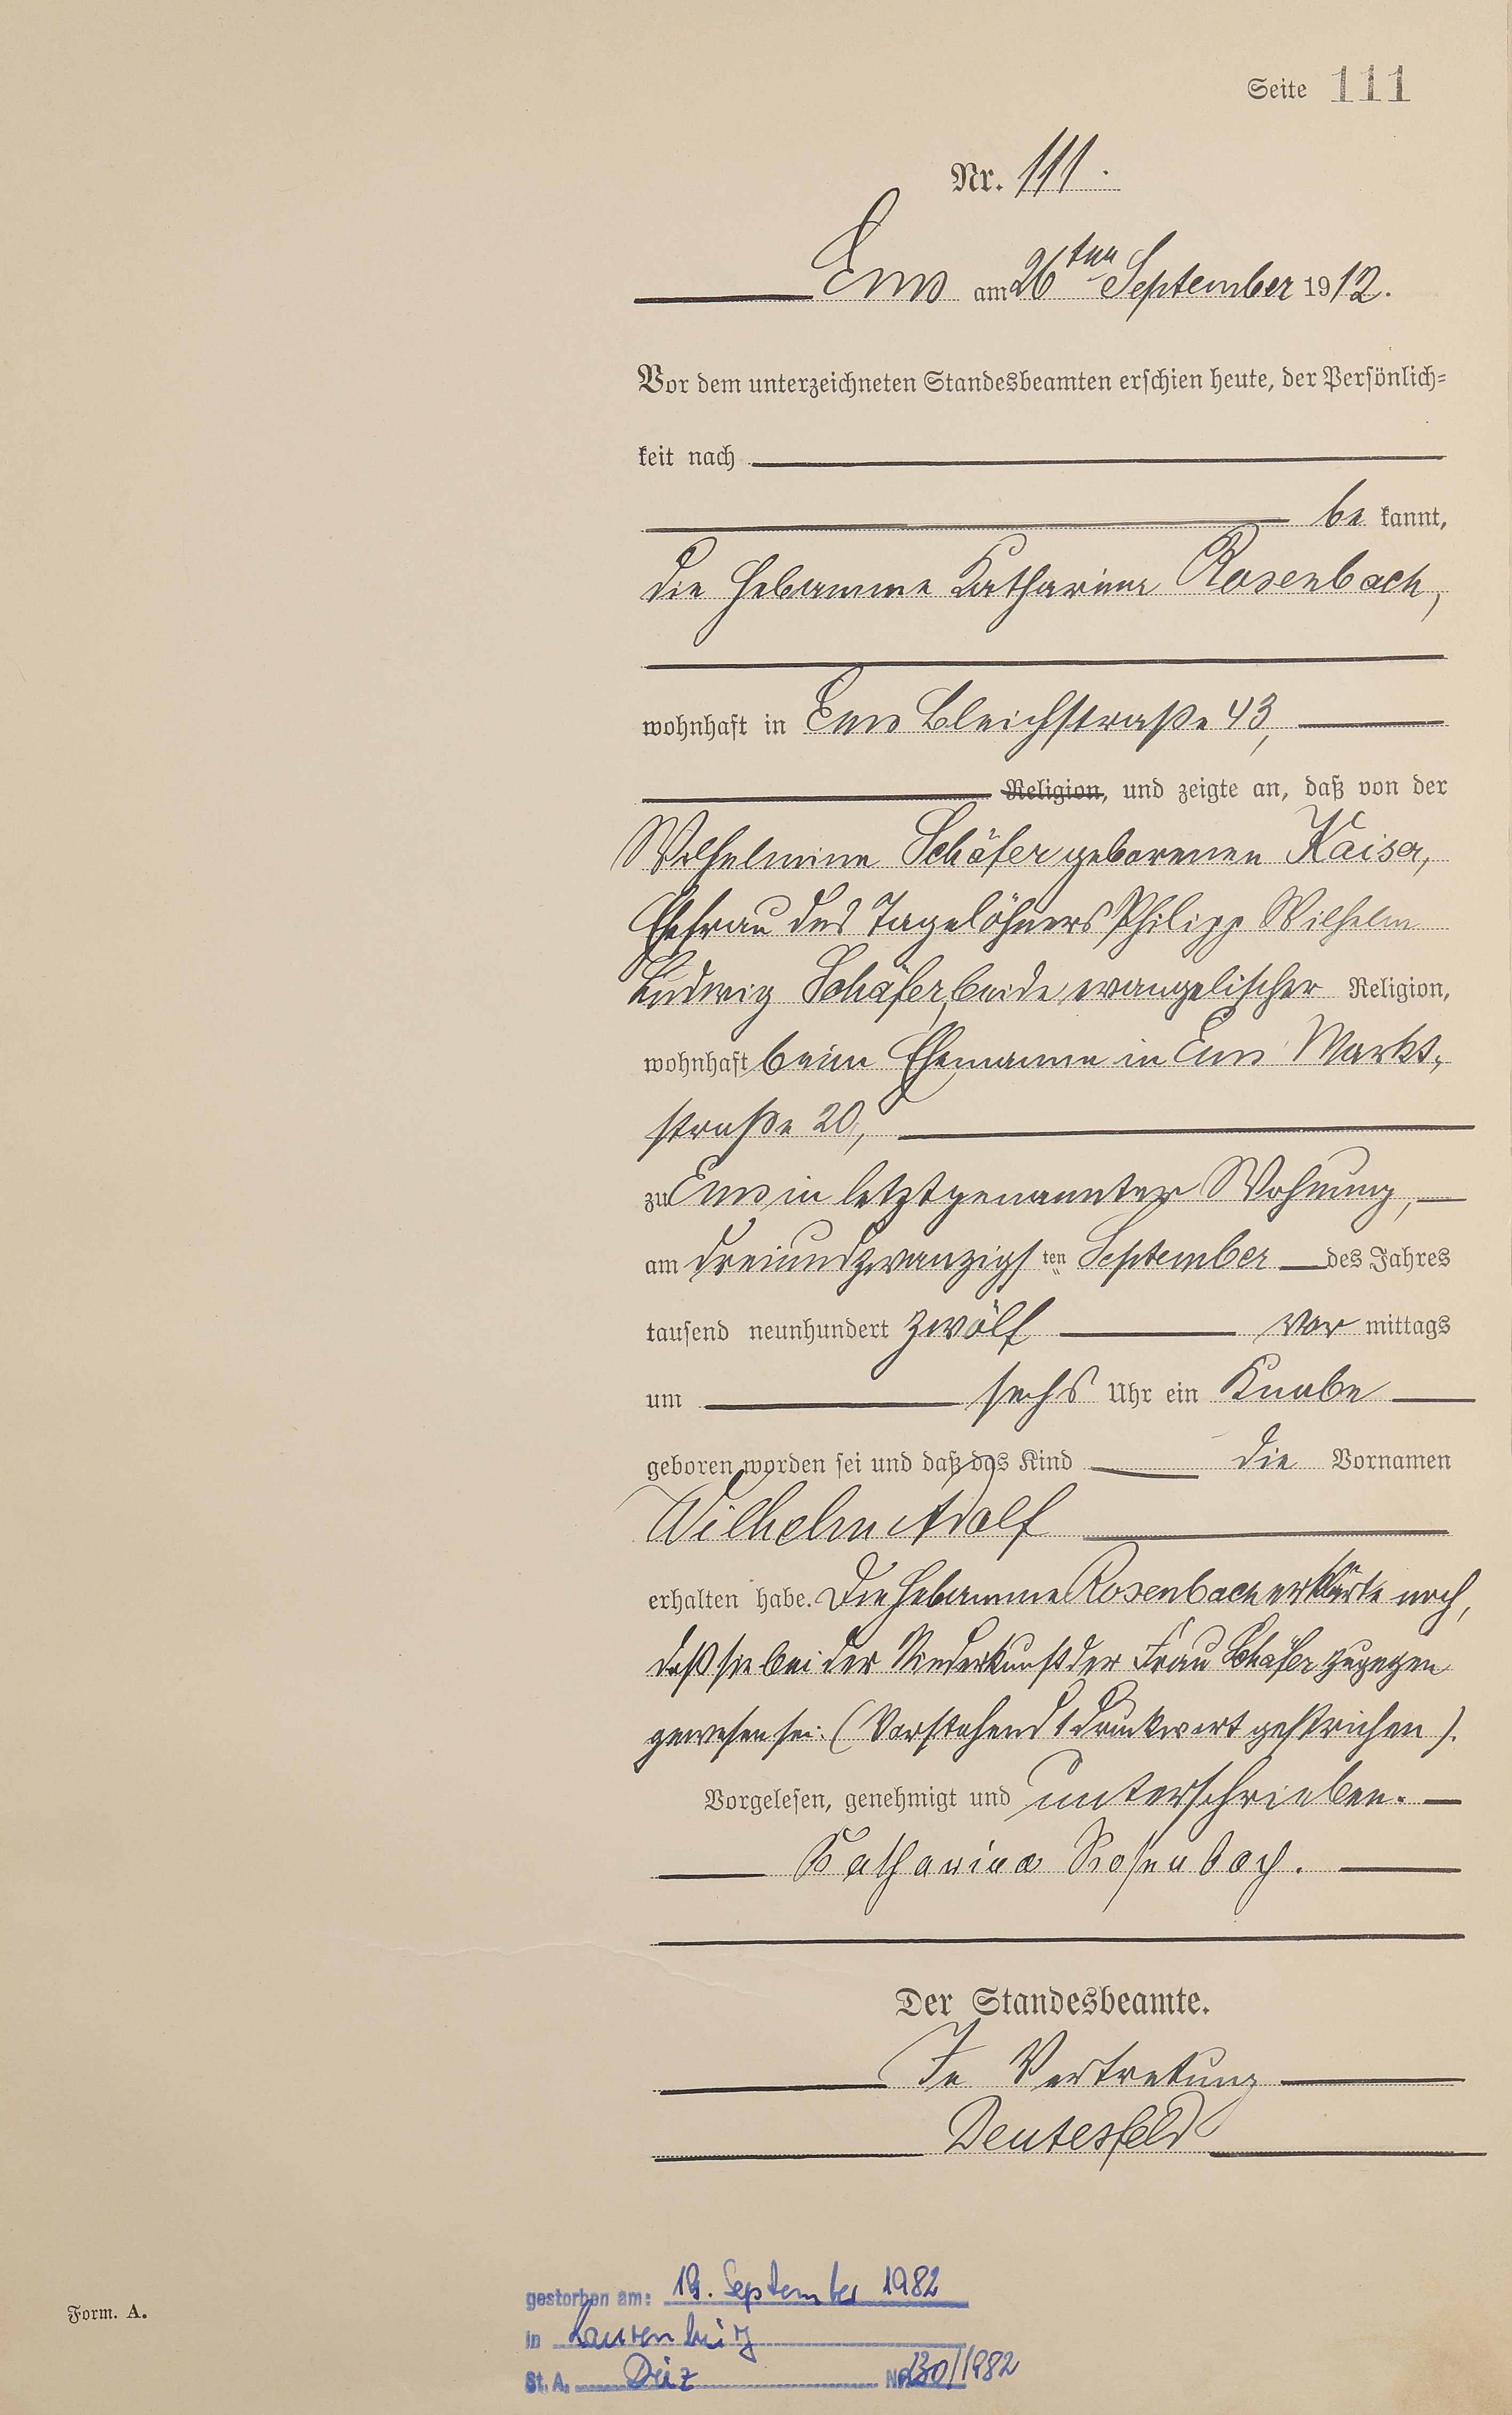 Seite 111
Nr. 111.
Ems am 26ten September 1912.
Vor dem unterzeichneten Standesbeamten erschien heute, der Persönlich=
keit nach
be kannt,
die Hebamme Katharina Rosenbach,
wohnhaft in Ems Bleichstraße 43,
Religion, und zeigte an, daß von der
Wilhelmine Schäfer geborenen Kaiser,
Ehefrau des Tagelöhners Philipp Wilhelm
Ludwig Schäfer, beide evangelischer Religion,
wohnhaft beim Ehemanne in Ems Markt-
straße 20,
zu Ems in letztgenannter Wohnung,
am dreiundzwanzigsten September des Jahres
tausend neunhundert zwölf vor mittags
um sechs Uhr ein Knabe
geboren worden sei und daß das Kind die Vornamen
Wilhelm Adolf
erhalten habe. Die Hebamme Rosenbach erklärte noch,
daß sie bei der Niederkunft der Frau Schäfer zugegen
gewesen sei. (Vorstehend 1 Druckwort gestrichen).
Vorgelesen, genehmigt und unterschrieben.
Katharina Rosenbach.
Der Standesbeamte.
In Vertretung
Deutesfeld
Form. A.
gestorben am: 19. September 1982
in Laurenburg
St. A. Diez Nr. 130/1982